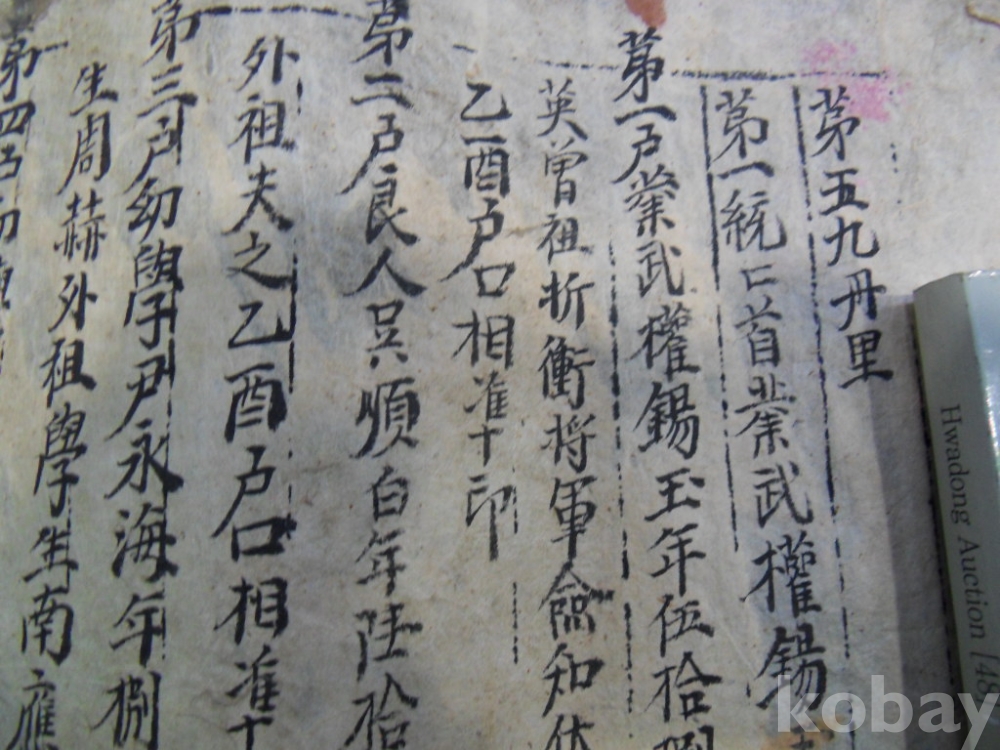 第五九丹里
第一統口首業武權錫玉
第一戶業武權錫玉年伍拾捌
英曾祖折衝將軍僉知
乙酉戶口相准十印
第二戶良人吳順白年陸拾
外祖夫之乙酉戶口相准十
第三戶幼學尹永海年捌
生周赫外祖學生南應
第四戶幼
Hwadong Auction [48
kobay